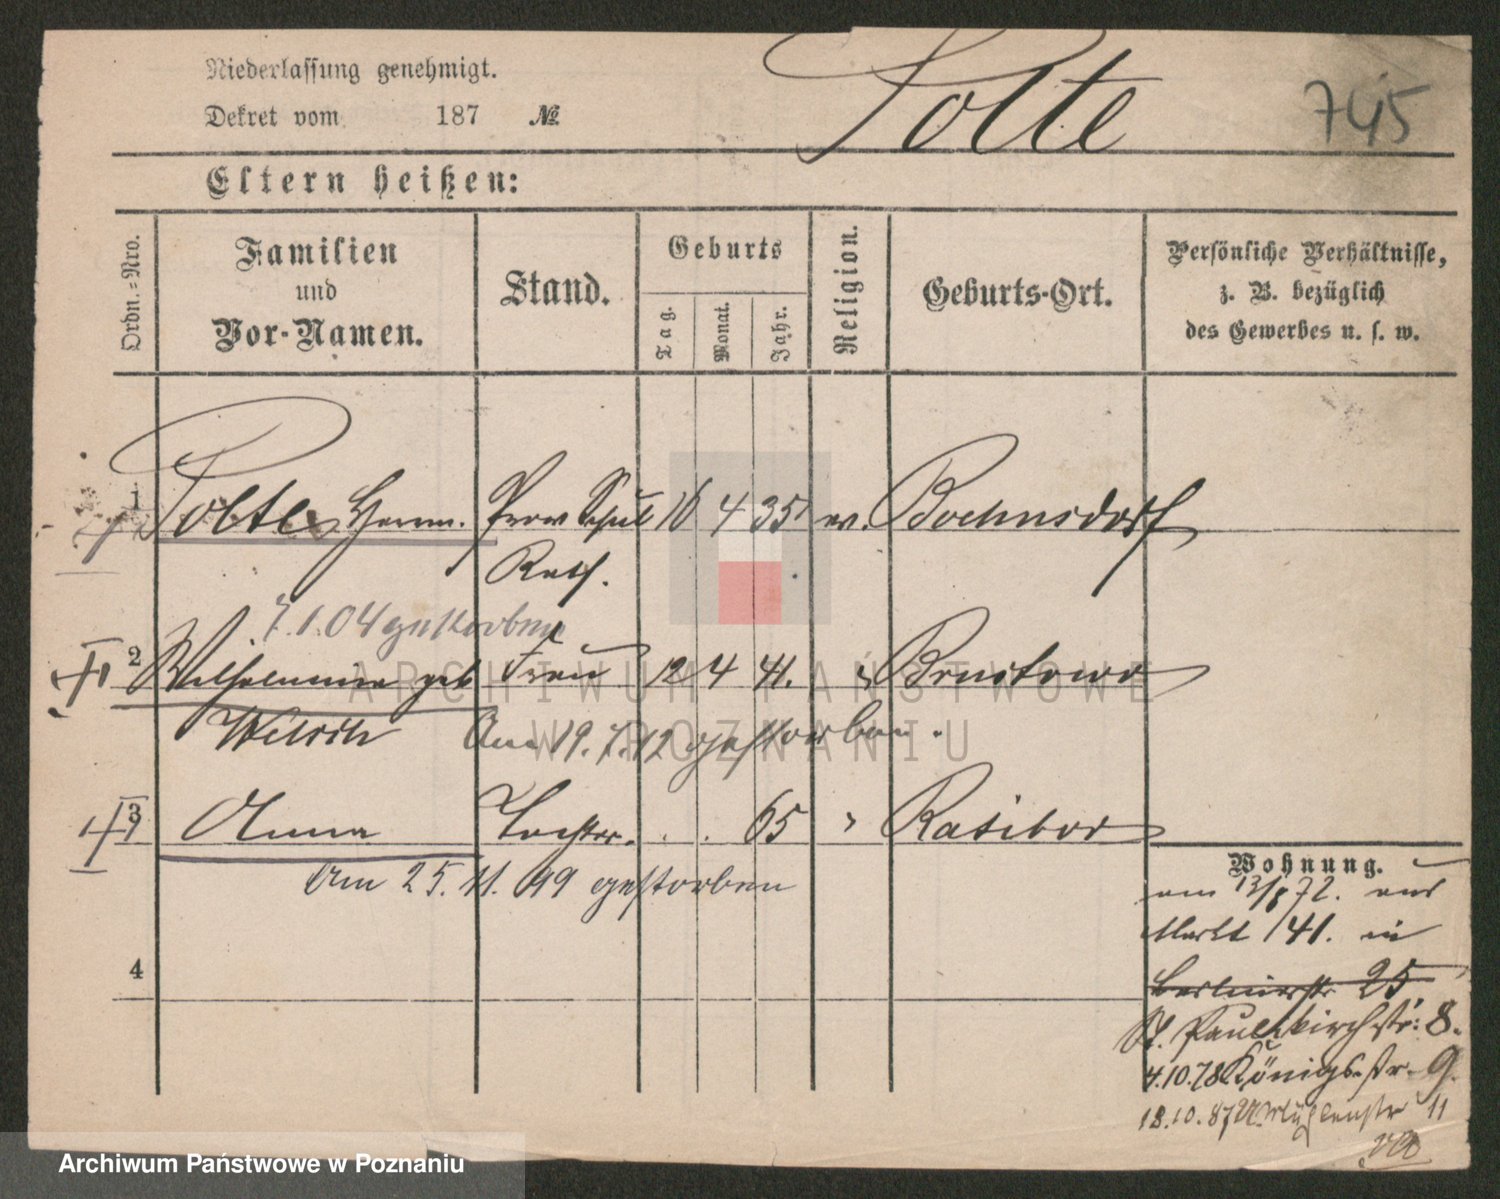 Niederlassung genehmigt.
Dekret vom 187 №
Polte
745
Eltern heißen:
Ordn.=Nro.
Familien
und
Vor-Namen.
Stand.
Geburts
Tag.
Monat.
Jahr.
Religion.
Geburts-Ort.
Persönliche Verhältnisse,
z. B. bezüglich
des Gewerbes u. s. w.
1 Polte Herm. Prov Schul 16 4 35 ev. Bochnsdorf
Rath.
7.1.04 gestorben
2 Wilhelmine geb Frau 12 4 41. Brustowo
Am 19.7.12 gestorben.
3 Anna Tochter. . . 65 Ratibor
Am 25. 11. 99 gestorben
4
Wohnung.
am 13/8 72. aus
Markt 41. in
Berlinerstr 25
St. Paulikirchstr: 8.
4.10.78 Königsstr. 9.
13.10.87 Mühlenstr 11
ARCHIWUM PAŃSTWOWE
W POZNANIU
Archiwum Państwowe w Poznaniu